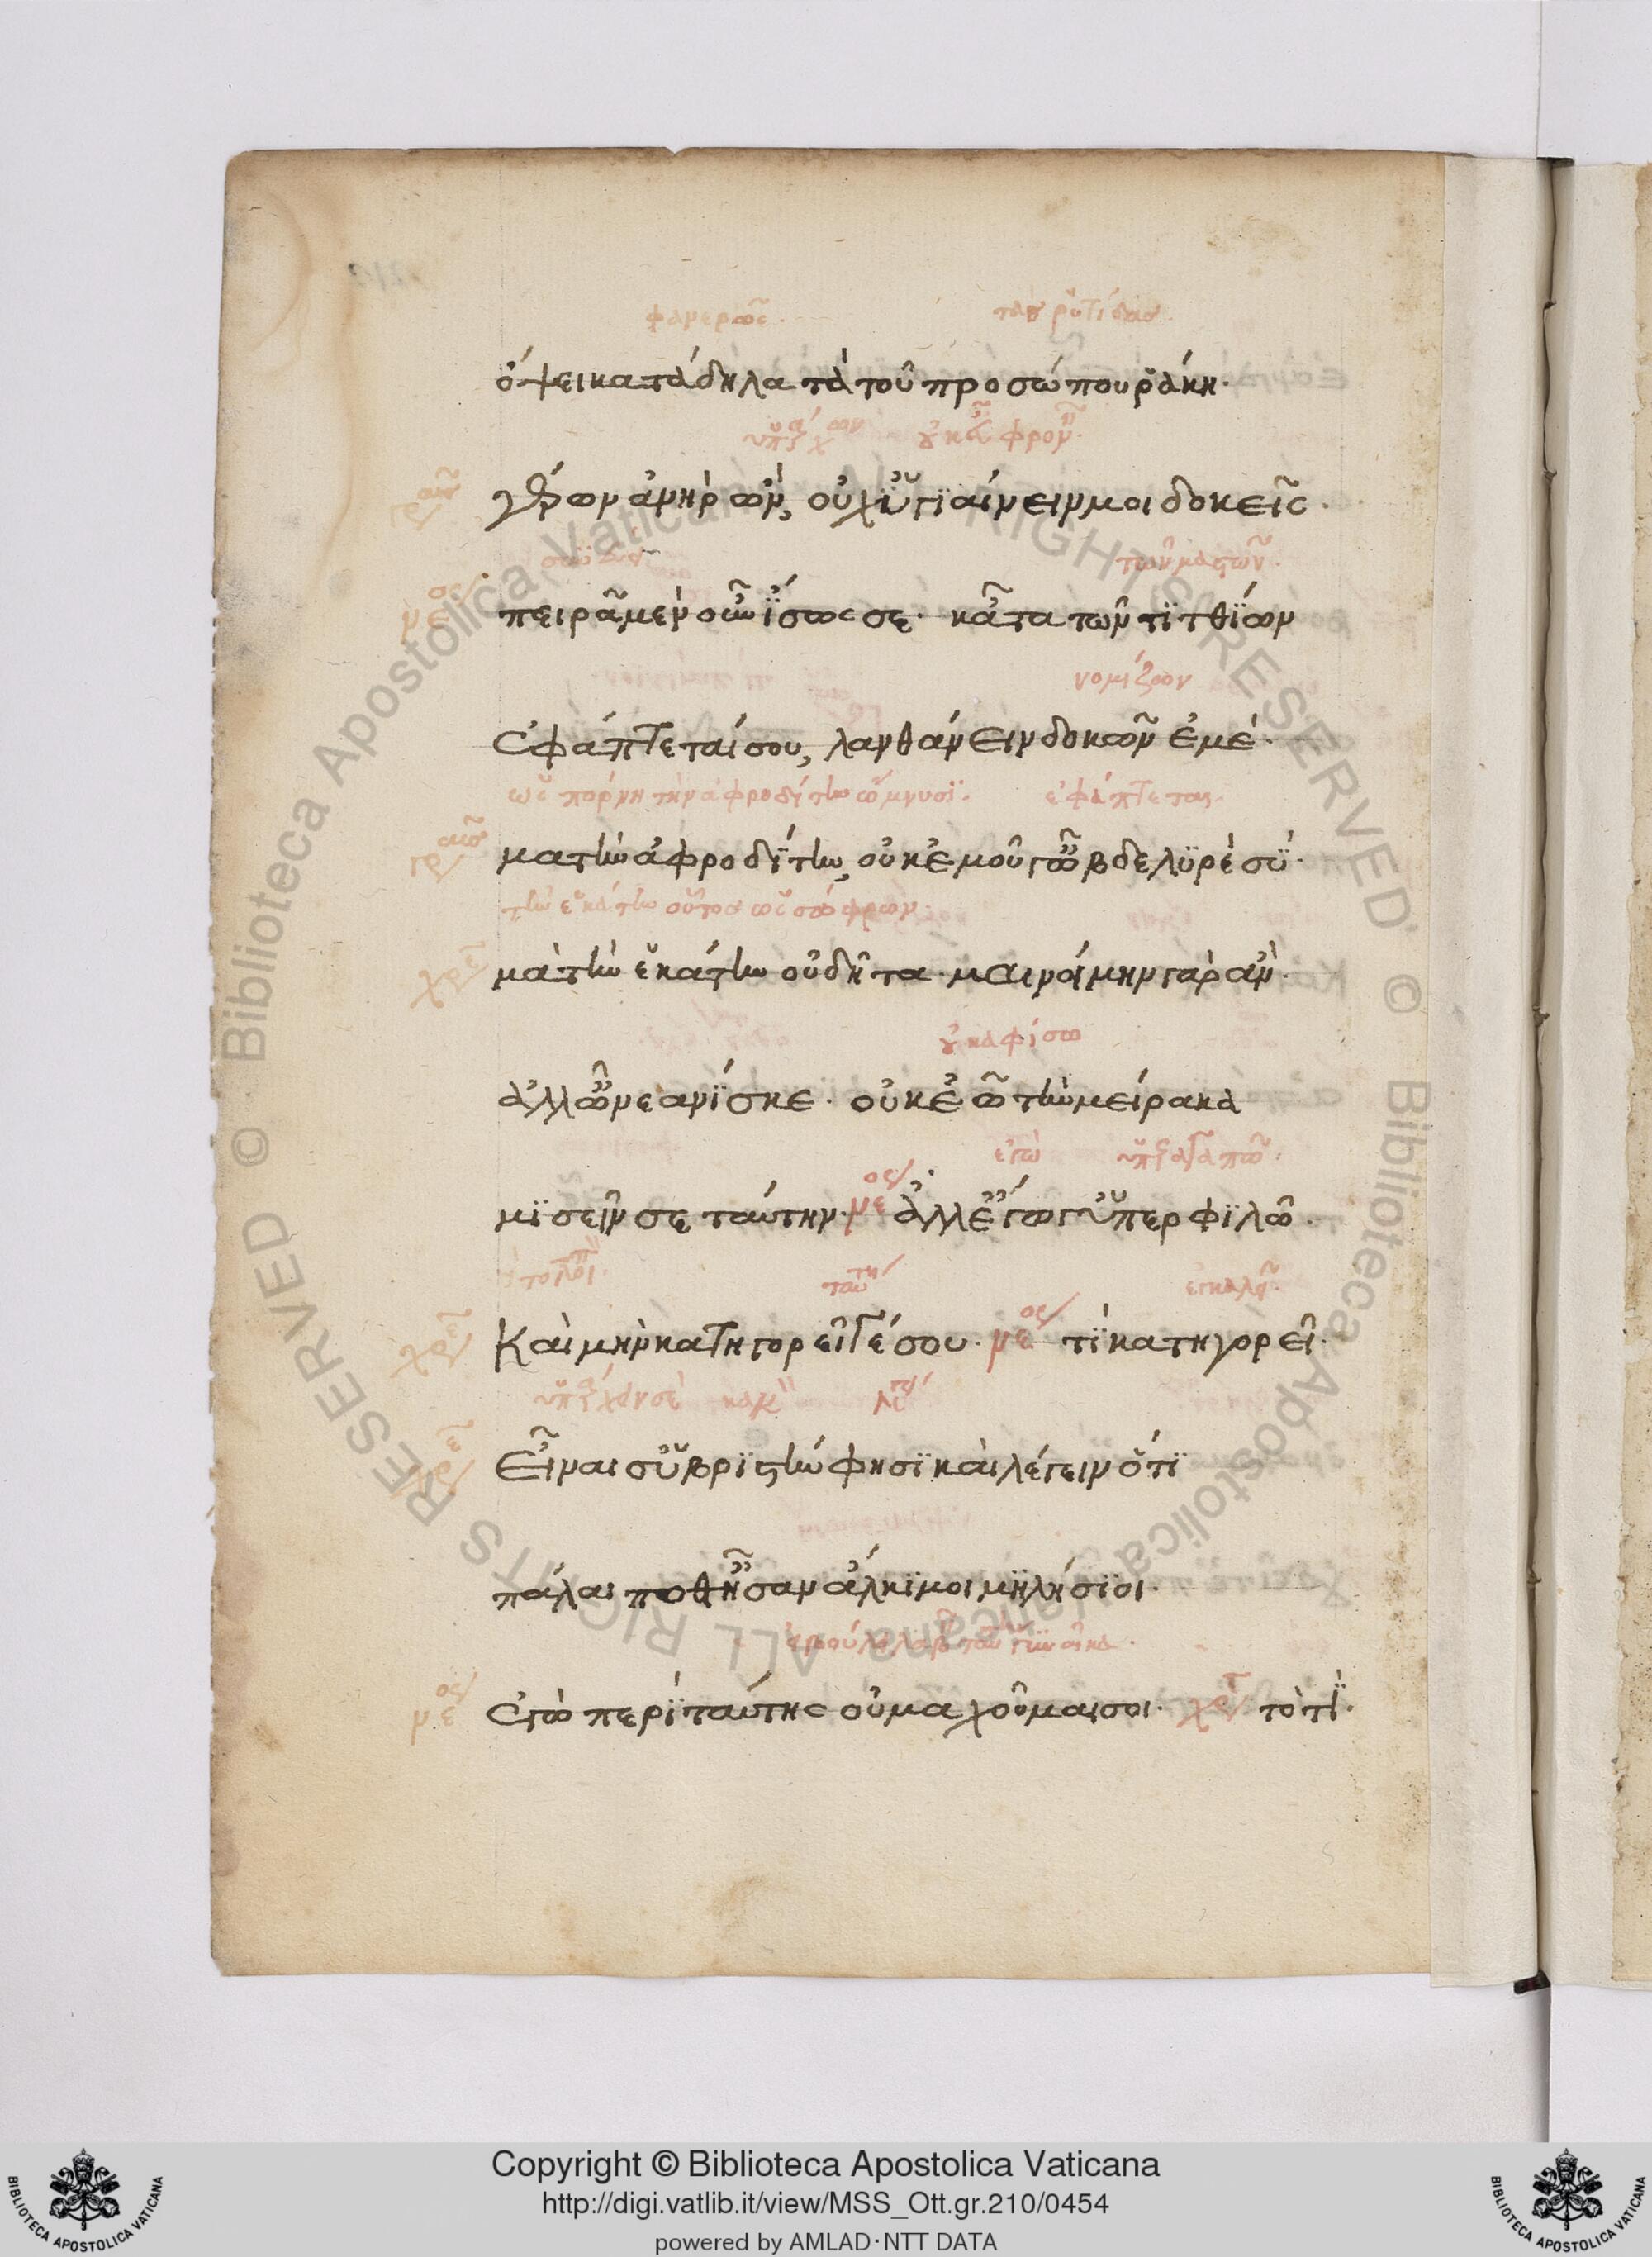 φανερῶς. τὰς ῥυτίδας
ὄψει κατάδηλα τὰ τοῦ προσώπου ῥάκη.
γέρων ἀνὴρ ὢν, οὐχ ὑγϊαίνειν μοι δοκεῖς.
τῶν μαστῶν.
πειρᾶ μὲν οὖν ἴσως σε. κᾆτα τῶν τϊτθΐων
νομίζων
ἐφάπτεταί σου, λανθάνειν δοκῶν ἐμέ.
ὡς πόρνη τὴν ἀφροδίτην ὄμνυσϊ. ἐφάπτεται.
μα τὴν ἀφροδΐτην, οὐκ ἐμοῦ γ ὦ βδελϋρέ σϋ.
τὴν ἑκάτην οὗτος ὡς σώφρων.
μὰ τὴν ἑκάτην οὐ δῆτα. μαινοίμην γὰρ ἄν.
οὐκ ἀφίσω
ἀλλ ὦ νεανΐσκε. οὐκ ἐῶ τὴν μείρακα
ἐγὼ ὑπεραγαπῶ.
μϊσεῖν σε ταύτην. με ος ἀλλ ἔγωγ ὑπερφϊλῶ.
καὶ μὴν κατηγορεῖ γέ σου. με ος τΐ κατηγορεῖ.
εἶναι σ ὑβρϊστήν φησϊ καὶ λέγειν ὅτϊ
πάλαι ποθ ἦσαν ἄλκϊμοι μϊλήσϊοι.
με ος ἐγὼ περῒ ταύτης οὐ μαχοῦμαι σοι. χρε τὸ τΐ.
Copyright © Biblioteca Apostolica Vaticana
http://digi.vatlib.it/view/MSS_Ott.gr.210/0454
powered by AMLAD·NTT DATA
BIBLIOTECA APOSTOLICA VATICANA
BIBLIOTECA APOSTOLICA VATICANA
© Biblioteca Apostolica Vaticana ALL RIGHTS RESERVED
© Biblioteca Apostolica Vaticana ALL RIGHTS RESERVED